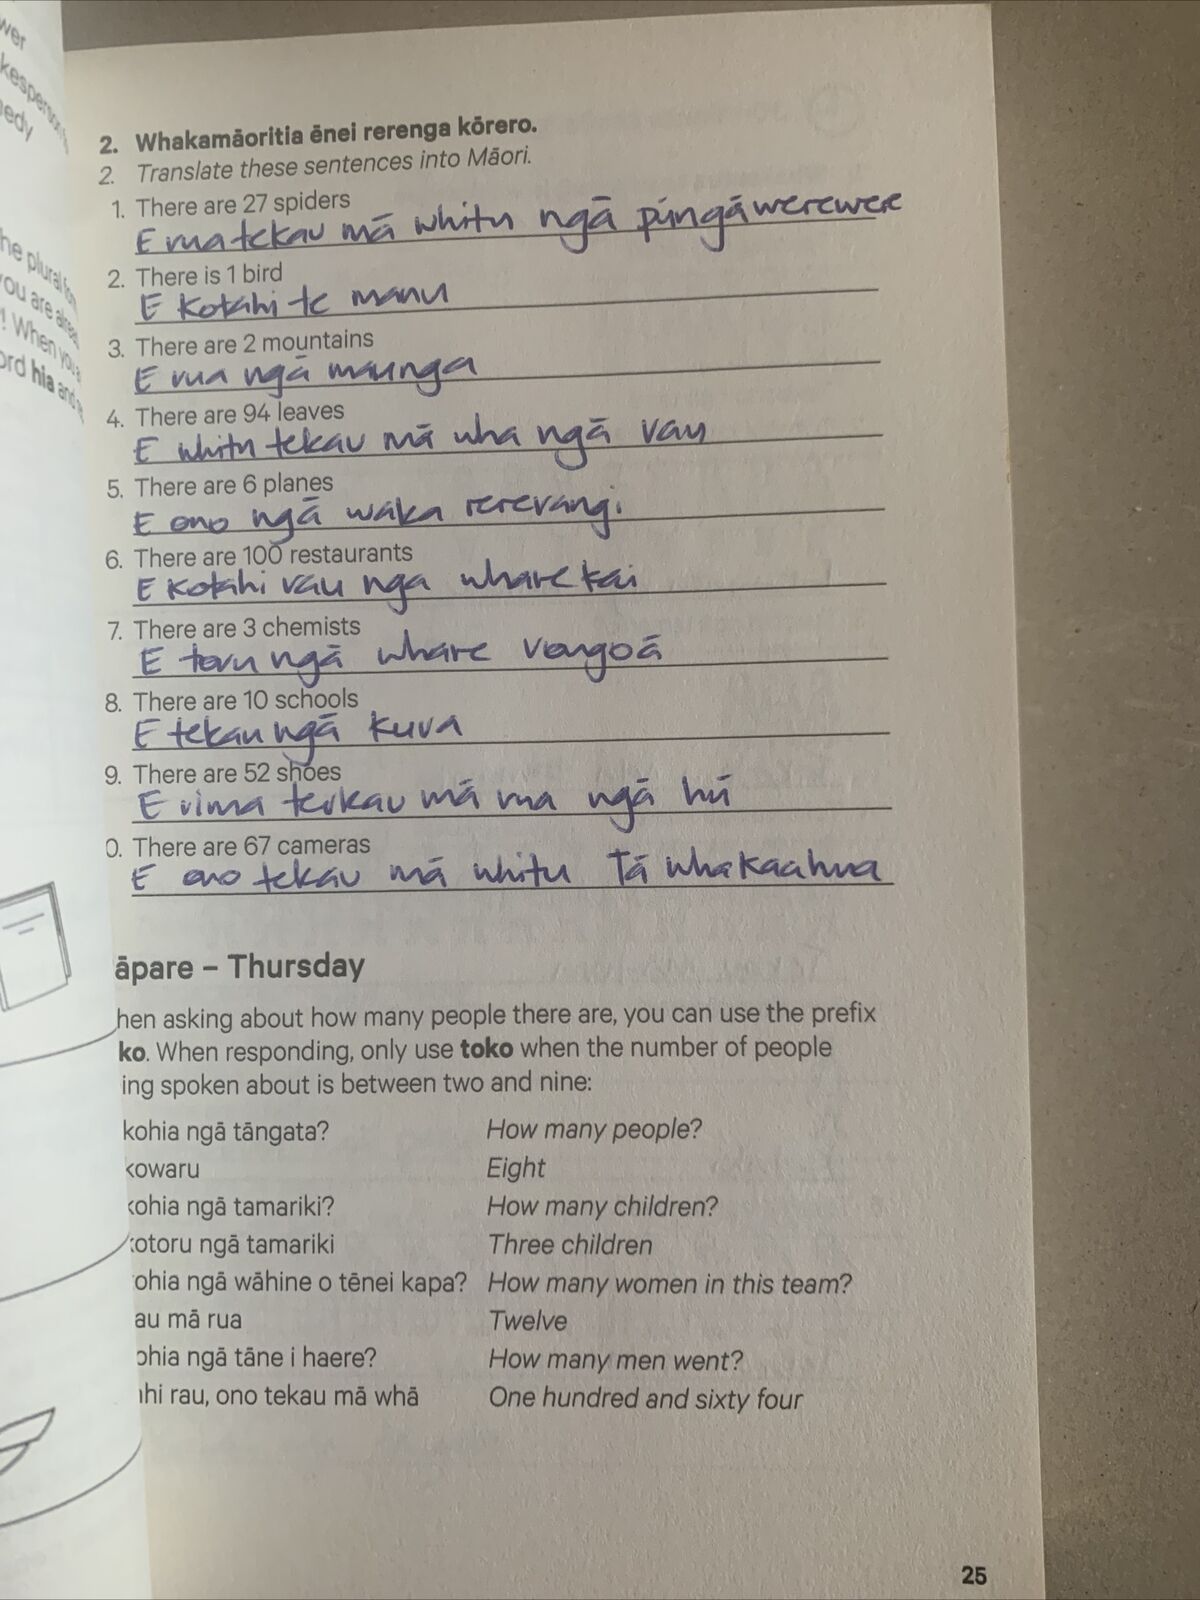 wer
kesperson
edy
he plural for
you are alrea
! When you a
ord hia and
2. Whakamāoritia ēnei rerenga kōrero.
2. Translate these sentences into Māori.
1. There are 27 spiders
E rua tekau mā whitu ngā pūngāwerewere
2. There is 1 bird
E kotahi te manu
3. There are 2 mountains
E rua ngā maunga
4. There are 94 leaves
E whitu tekau mā wha ngā rau
5. There are 6 planes
E ono ngā waka rererangi
6. There are 100 restaurants
E kotahi rau nga whare kai
7. There are 3 chemists
E toru ngā whare rongoā
8. There are 10 schools
E tekau ngā kura
9. There are 52 shoes
E rima tekau mā rua ngā hū
0. There are 67 cameras
E ono tekau mā whitu Tā whakaahua
āpare – Thursday
hen asking about how many people there are, you can use the prefix
ko. When responding, only use toko when the number of people
ing spoken about is between two and nine:
kohia ngā tāngata? How many people?
kowaru Eight
kohia ngā tamariki? How many children?
kotoru ngā tamariki Three children
ohia ngā wāhine o tēnei kapa? How many women in this team?
au mā rua Twelve
ohia ngā tāne i haere? How many men went?
ahi rau, ono tekau mā whā One hundred and sixty four
25